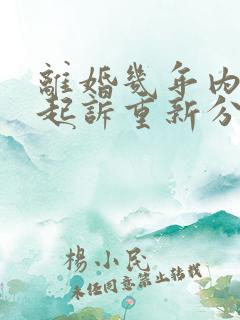 離婚幾年內
起訴重新分
楊小民
未經同意禁止轉載